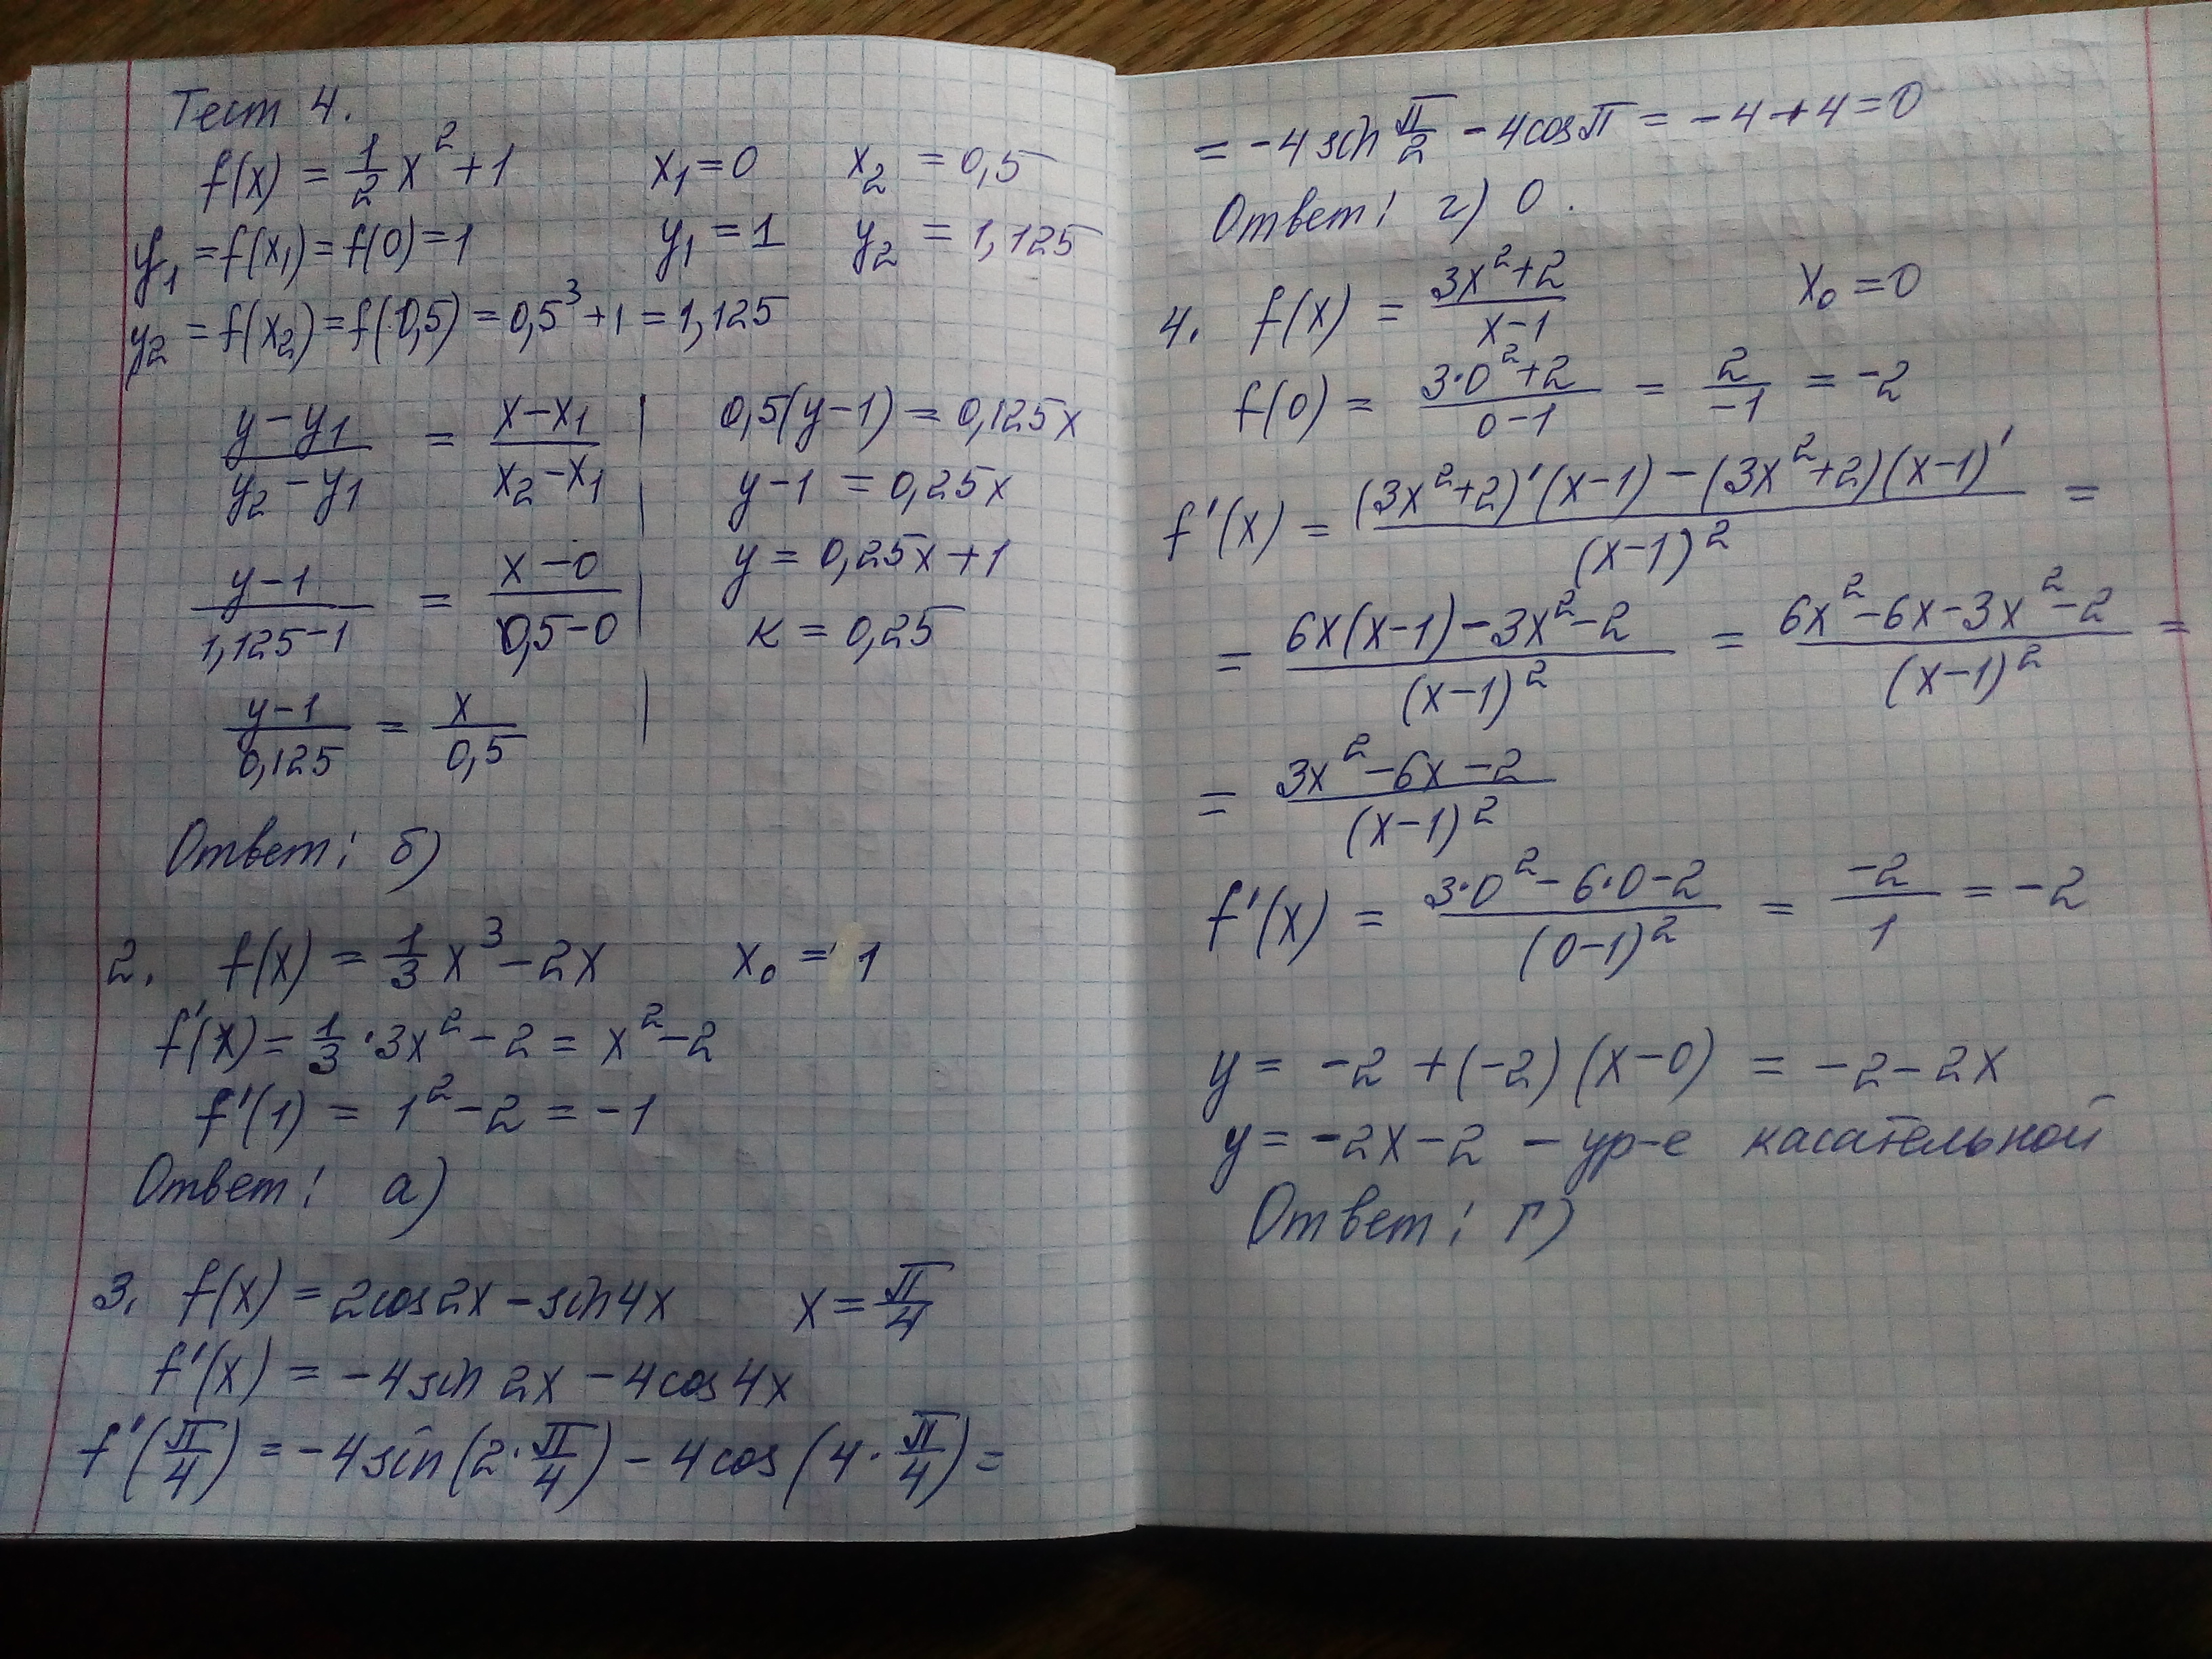 Тест 4.
f(x) = 1/2 x² + 1    x₁ = 0    x₂ = 0,5
y₁ = f(x₁) = f(0) = 1    y₁ = 1    y₂ = 1,125
y₂ = f(x₂) = f(0,5) = 0,5³ + 1 = 1,125
(y − y₁)/(y₂ − y₁) = (x − x₁)/(x₂ − x₁) | 0,5(y − 1) = 0,125x
y − 1 = 0,25x
(y − 1)/(1,125 − 1) = (x − 0)/(0,5 − 0) | y = 0,25x + 1
к = 0,25
(y − 1)/0,125 = x/0,5 |
Ответ: б)
2. f(x) = 1/3 x³ − 2x    x₀ = 1
f'(x) = 1/3 · 3x² − 2 = x² − 2
f'(1) = 1² − 2 = −1
Ответ: а)
3. f(x) = 2cos2x − sin4x    x = π/4
f'(x) = −4 sin 2x − 4cos 4x
f'(π/4) = −4 sin(2 · π/4) − 4 cos(4 · π/4) =
= −4 sin π/2 − 4cosπ = −4 + 4 = 0
Ответ: г) 0.
4. f(x) = (3x² + 2)/(x − 1)    x₀ = 0
f(0) = (3·0² + 2)/(0 − 1) = 2/−1 = −2
f'(x) = ((3x² + 2)'(x − 1) − (3x² + 2)(x − 1)')/(x − 1)² =
= (6x(x − 1) − 3x² − 2)/(x − 1)² = (6x² − 6x − 3x² − 2)/(x − 1)² =
= (3x² − 6x − 2)/(x − 1)²
f'(x) = (3·0² − 6·0 − 2)/(0 − 1)² = −2/1 = −2
y = −2 + (−2)(x − 0) = −2 − 2x
y = −2x − 2 − ур-е касательной
Ответ: г)